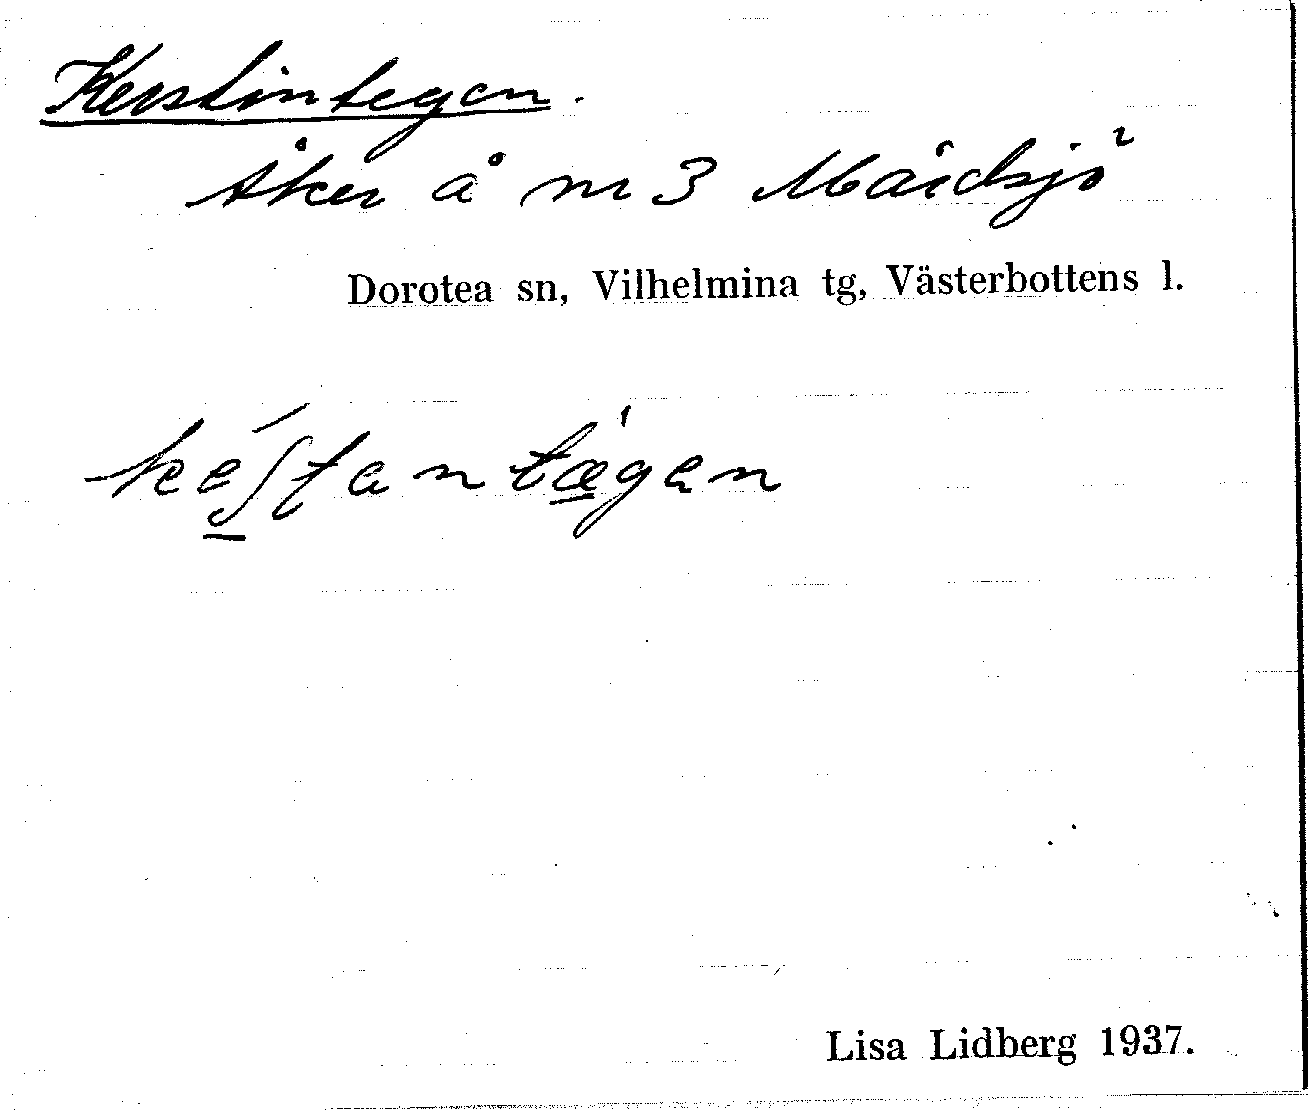 Kerstintegen.
åker å nr 3 Mårdsjö
Dorotea sn, Vilhelmina tg, Västerbottens l.
ke̲ʃtantæ̲gen
Lisa Lidberg 1937.